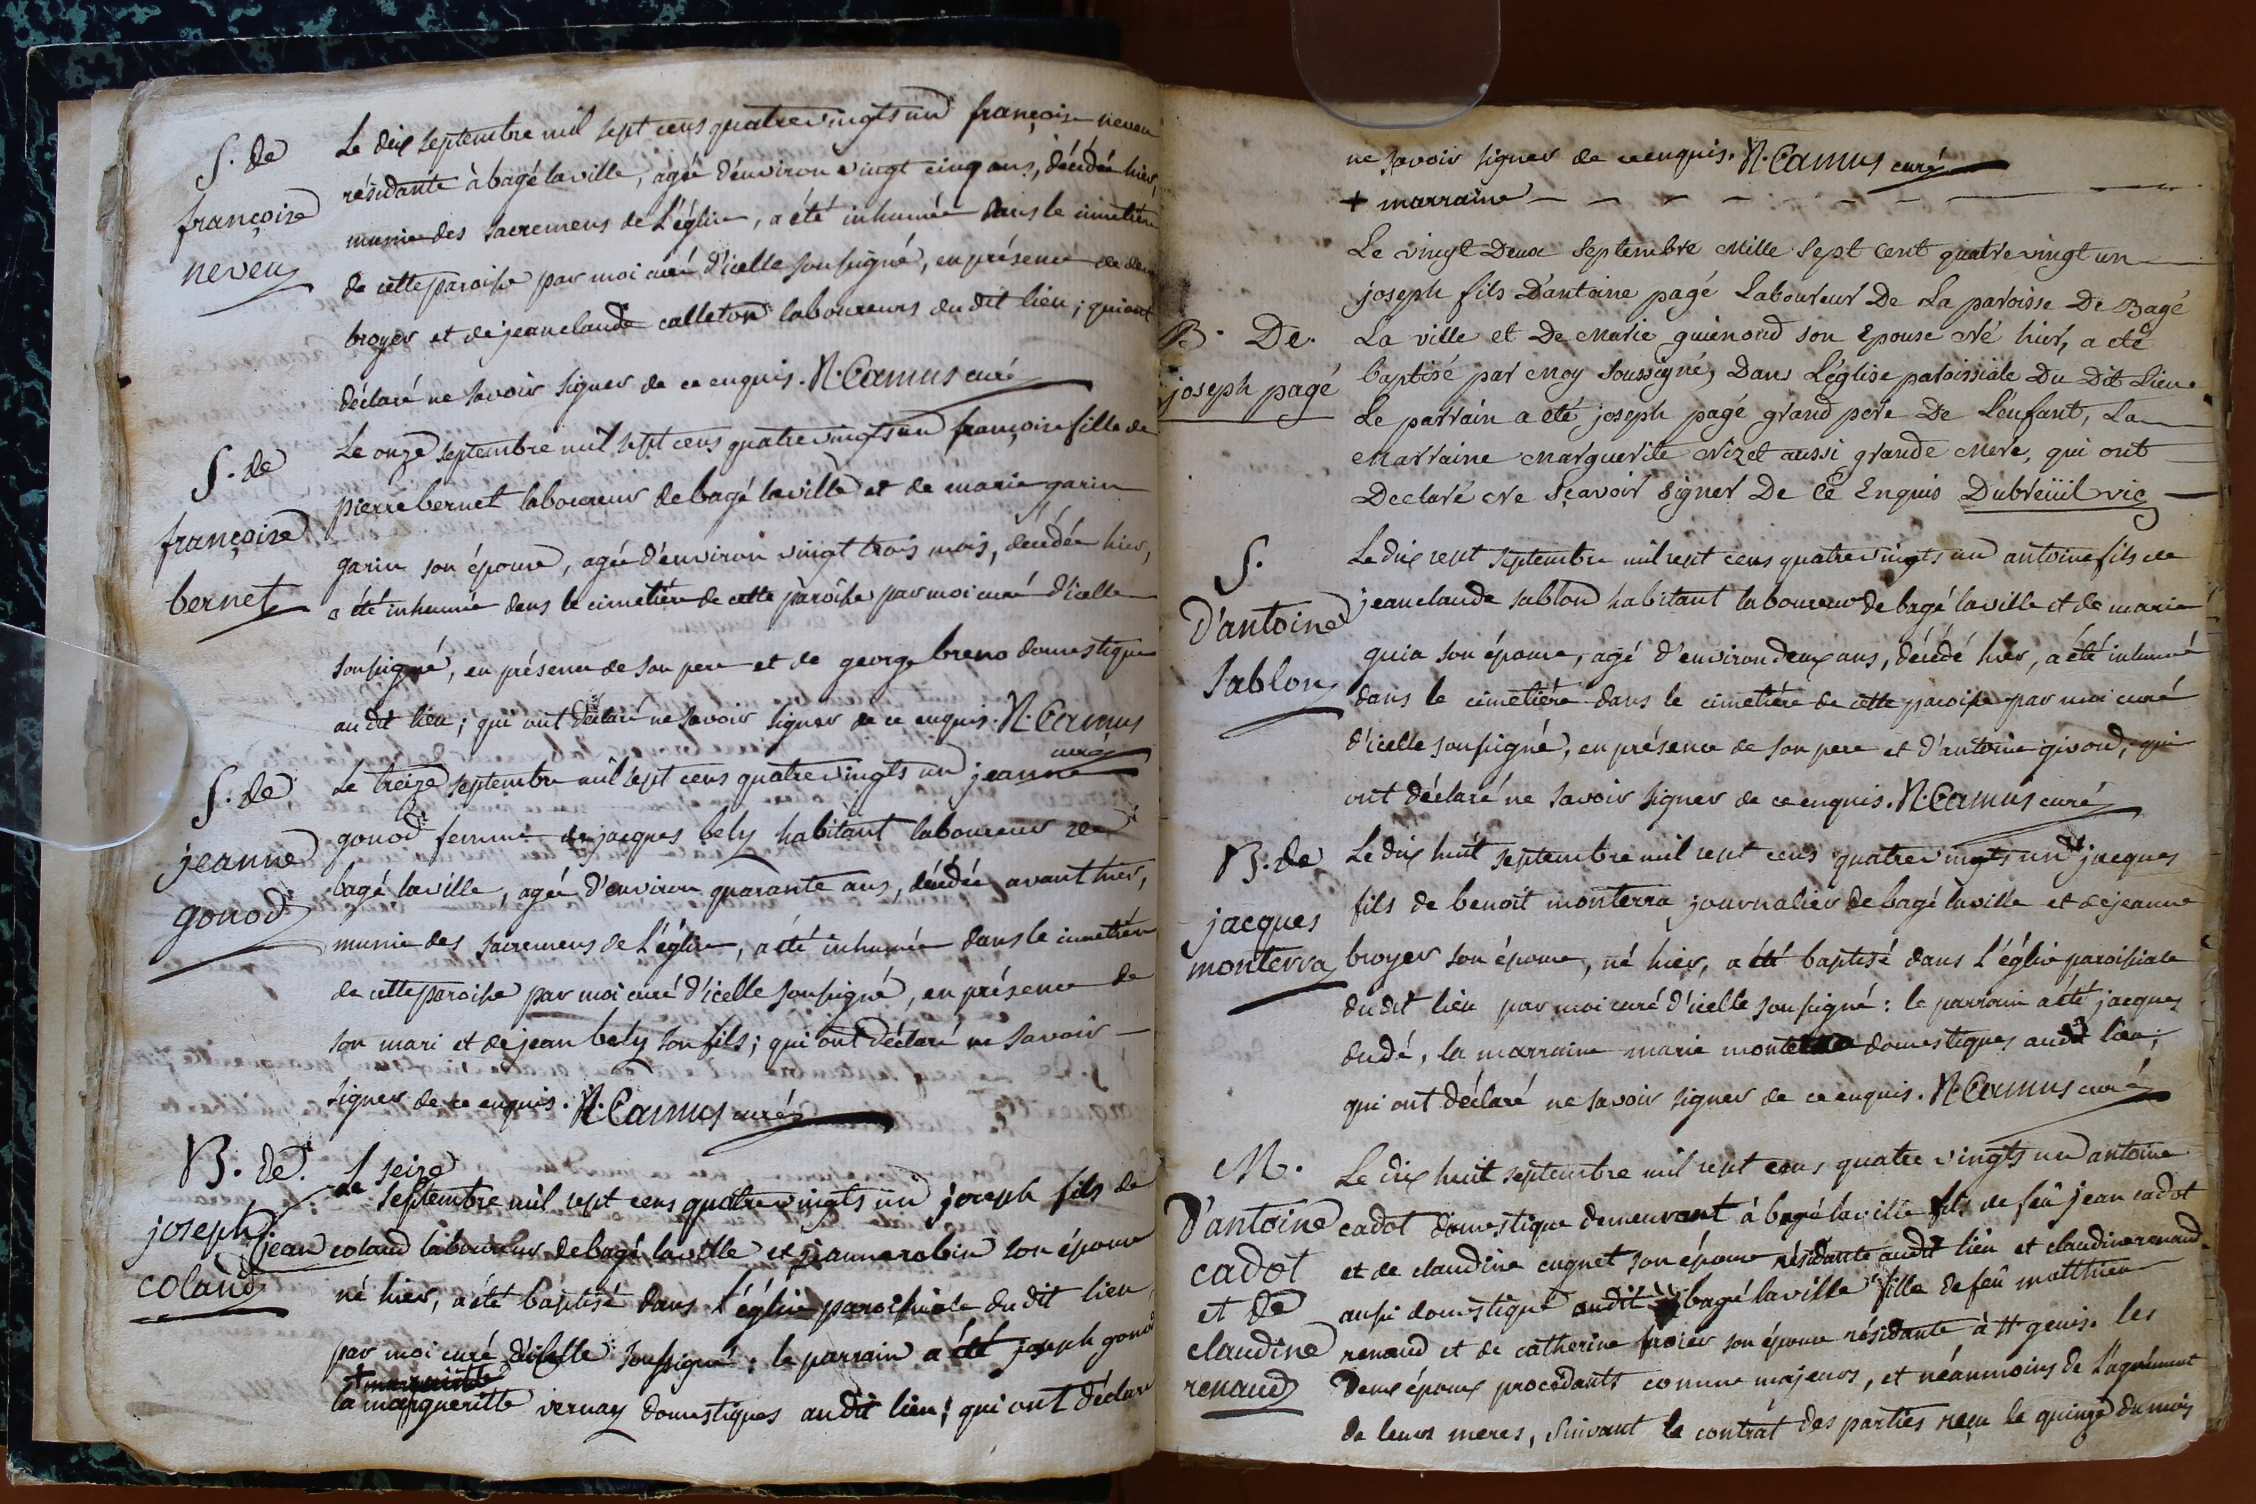 S. de
françoise
neveu
Le dix septembre mil sept cens quatrevingts un françoise neveu
résidante à bagé laville, agée d'environ vingt cinq ans, décédée hier,
munie des sacremens de l'église, a été inhumée dans le cimetière
de cette paroisse par moi curé d'icelle soussigné, en présence de
broyer et de jean claude calleton laboureurs du dit lieu; qui ont
déclaré ne savoir signer de ce enquis. N. Camus curé
S. de
françoise
bernet
Le onze septembre mil sept cens quatrevingts un françoise fille de
pierre bernet laboureur de bagé laville et de marie garin
garin son épouse, agée d'environ vingt trois mois, décédée hier,
a été inhumée dans le cimetière de cette paroisse par moi curé d'icelle
soussigné, en présence de son pere et de george breno domestique
au dit lieu; qui ont déclaré ne savoir signer de ce enquis. N. Camus
curé
S. de
jeanne
gonod
Le treize septembre mil sept cens quatrevingts un jeanne
gonod femme de jacques bely habitant laboureur de
bagé laville, agée d'environ quarante ans, décédée avant hier,
munie des sacremens de l'église, a été inhumée dans le cimetière
de cette paroisse par moi curé d'icelle soussigné, en présence de
son mari et de jean bely son fils; qui ont déclaré ne savoir
signer de ce enquis. N. Camus curé
B. de
joseph
coland
Le seize
septembre mil sept cens quatrevingts un joseph fils de
jean coland laboureur de bagé laville et jeanne robin son épouse
né hier, a été baptisé dans l'église paroissiale du dit lieu,
par moi curé d'icelle soussigné: le parrain a été joseph gonod
+
la margueritte vernay domestiques au dit lieu; qui ont déclaré
ne savoir signer de ce enquis. N. Camus curé
+ marraine
B. De
joseph pagé
Le vingt Deux Septembre Mille Sept Cent quatrevingt un
joseph fils D'antoine pagé Laboureur De La paroisse De Bagé
La ville et De Marie guienond son Epouse Né hier, a eté
baptisé par Moy Soussigné, Dans L'église paroissiale Du Dit Lieu
Le parrain a eté joseph pagé grand pere De L'enfant, La
Marraine Marguerite Nizet aussi grande Mere, qui ont
Declaré Ne Sçavoir Signer De Ce Enquis Dubreüil vic
S.
D'antoine
Sablon
Le dix sept septembre mil sept cens quatrevingts un antoine fils de
jean claude sablon habitant laboureur de bagé laville et de marie
guia son épouse, agé d'environ deux ans, décédé hier, a été inhumé
dans le cimetière dans le cimetière de cette paroisse par moi curé
d'icelle soussigné, en présence de son pere et d'antoine givord, qui
ont déclaré ne savoir signer de ce enquis. N. Camus curé
B. de
jacques
monterra
Le dix huit septembre mil sept cens quatrevingts un jacques
fils de benoît monterra journalier de bagé laville et de jeanne
broyer son épouse, né hier, a été baptisé dans l'église paroissiale
du dit lieu par moi curé d'icelle soussigné: le parrain a été jacques
dudé, la marraine marie domestiques au dit lieu;
qui ont déclaré ne savoir signer de ce enquis. N. Camus curé
M.
D'antoine
cadot
et de
claudine
renaud
Le dix huit septembre mil sept cens quatre vingts un antoine
cadot domestique demeurant à bagé laville fils de feû jean cadot
et de claudine cugnet son épouse résidante audit lieu et claudine renaud
aussi domestique audit bagé laville fille de feû matthieu
renaud et de catherine froier son épouse résidante à st genis. les
deux époux procédants comme majeurs, et néanmoins de l'agrément
de leurs meres, suivant le contrat des parties reçu le quinze du mois